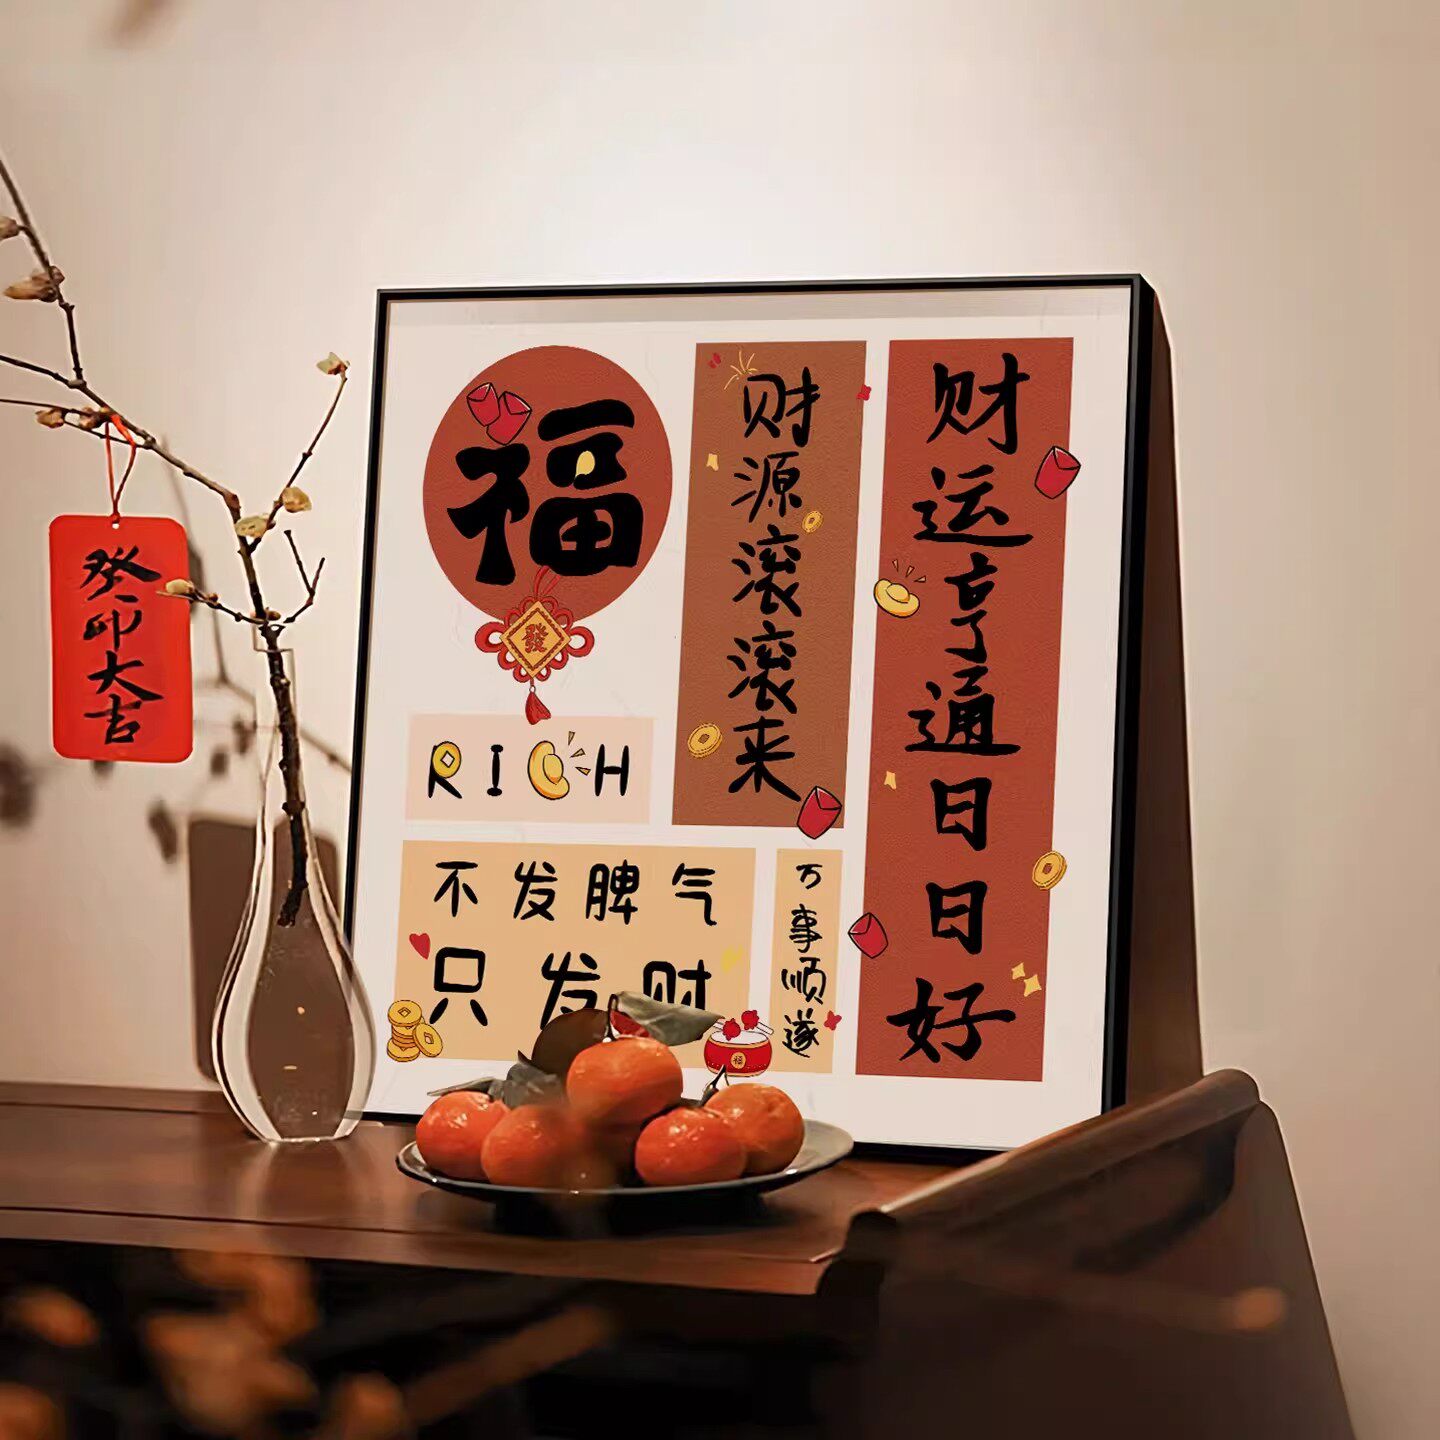 癸卯大吉
福
發
RICH
财源滚滚来
财运亨通日日好
不发脾气
只发财
万事顺遂
福